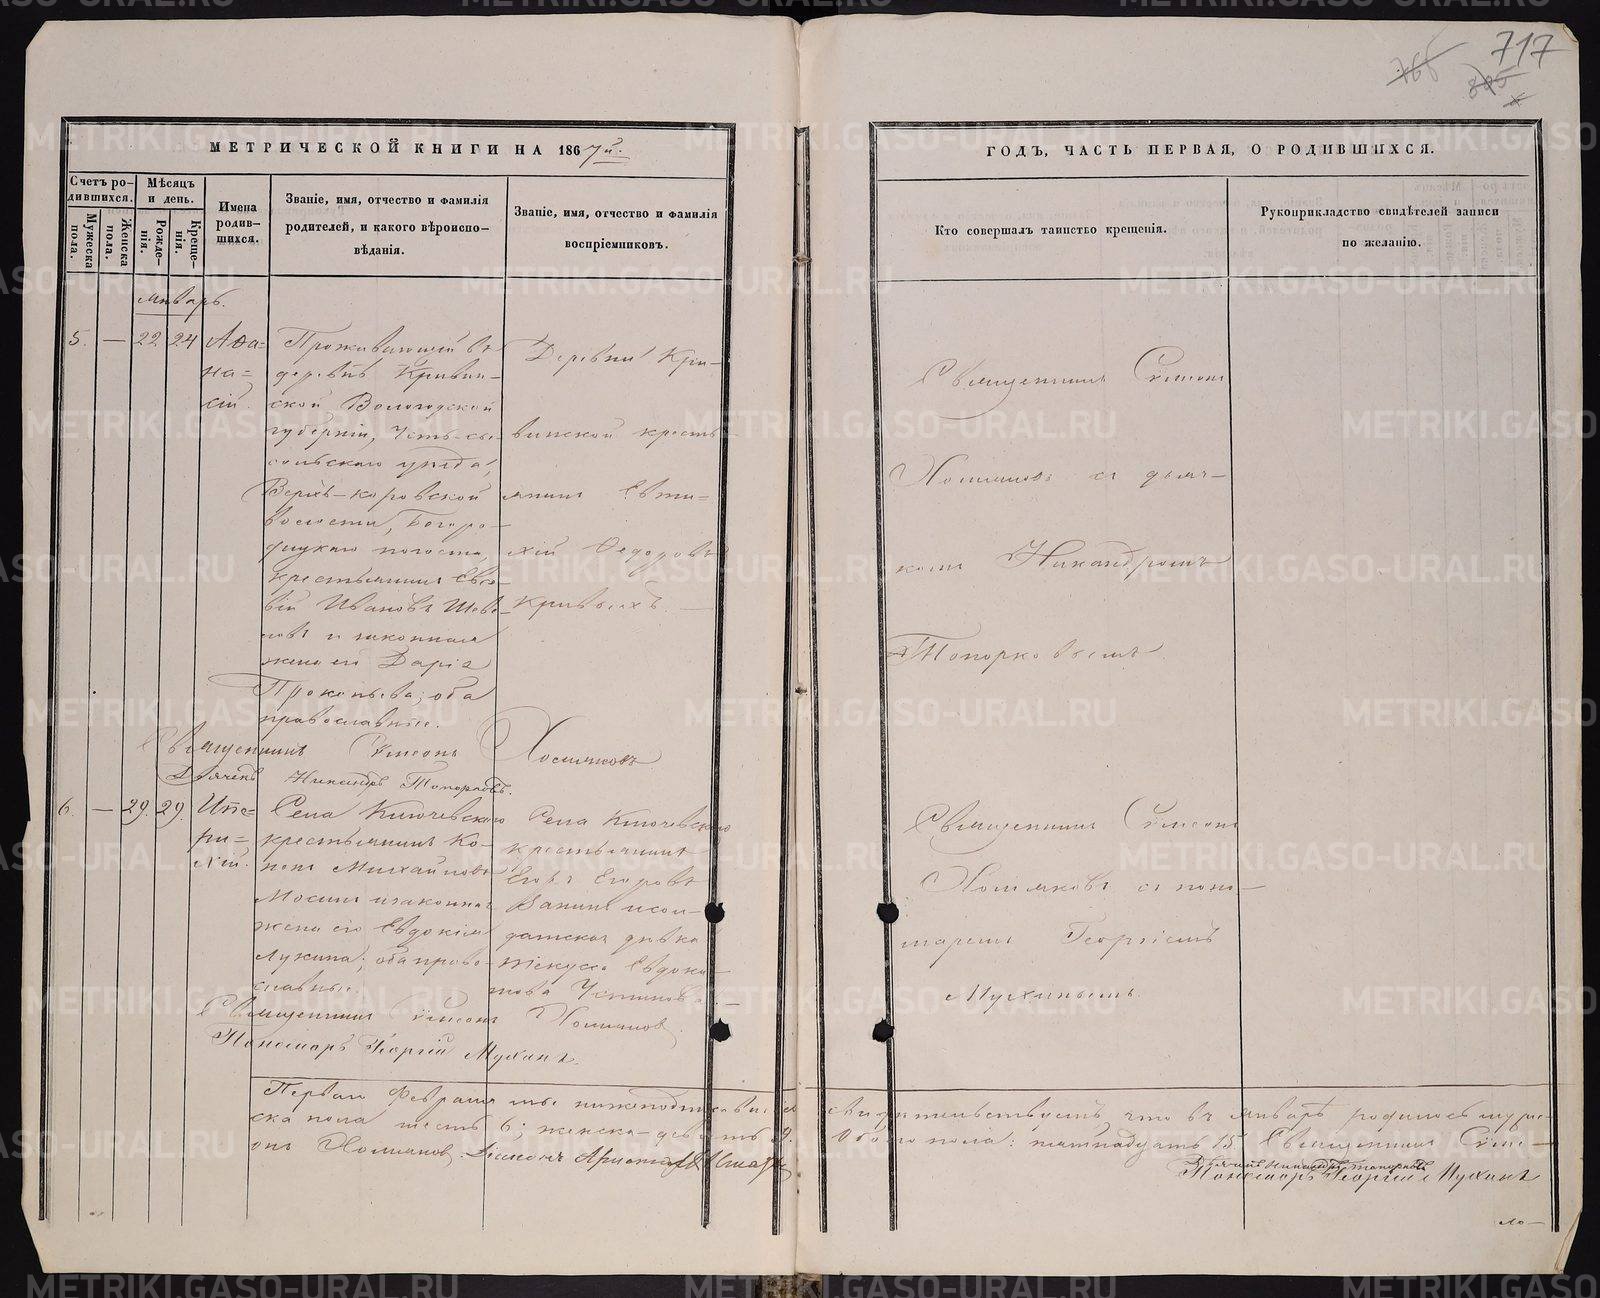 717
МЕТРИЧЕСКОЙ КНИГИ НА 1867й.
Счетъ родившихся.
Мужеска пола.
Женска пола.
Мѣсяцъ и день.
Рожденія.
Крещенія.
Имена родившихся.
Званіе, имя, отчество и фамилія
родителей, и какого вѣроиспо-
вѣданія.
Званіе, имя, отчество и фамилія
воспріемниковъ.
январь.
5. — 22 24
Аѳа=
на=
сій.
Проживающій въ
деревнѣ Кривин-
ской Вологодской
губерніи, Усть-сы-
сольскаго уѣзда,
волости, Богоро-
дицкаго погоста,
крестьянинъ Евсе-
вій Ивановъ
и законная
жена его Дарія
Прокопьева, оба
православные.
Деревни Кри-
винской кресть-
янинъ Евти=
хій Ѳедоровъ
Кривыхъ. —
Священникъ Сѵмеонъ Хомяковъ
Дьячекъ Никандръ Топорковъ.
6. — 29. 29.
Ипе=
ри=
хій.
Села Ключевскаго
крестьянинъ Ко-
нонъ Михайловъ
Мосинъ и законная
жена его Евдокія
Лукина, оба право-
славные.
Села Ключевскаго
крестьянинъ
Егоръ Егоровъ
Ванинъ и сол-
датская дѣвка
Евдоки-
мова Устинова. —
Священникъ Сѵмеонъ Хомяковъ.
Пономарь Георгій Мухинъ.
ГОДЪ, ЧАСТЬ ПЕРВАЯ, О РОДИВШИХСЯ.
Кто совершалъ таинство крещенія.
Рукоприкладство свидѣтелей записи
по желанію.
Священникъ Сѵмеонъ
Хомяковъ съ дьяч-
комъ Никандромъ
Топорковымъ
Священникъ Сѵмеонъ
Хомяковъ съ поно-
маремъ Георгіемъ
Мухинымъ.
Перваго Февраля мы нижеподписавшіеся свидѣтельствуемъ что въ январѣ родилось муже-
ска пола шесть 6; женска-девять 9. Обоего пола: пятнадцать 15. Священникъ Сѵме-
онъ Хомяковъ. Діаконъ
Дьячекъ Никандръ Топорковъ
Пономарь Георгій Мухинъ
METRIKI.GASO-URAL.RU